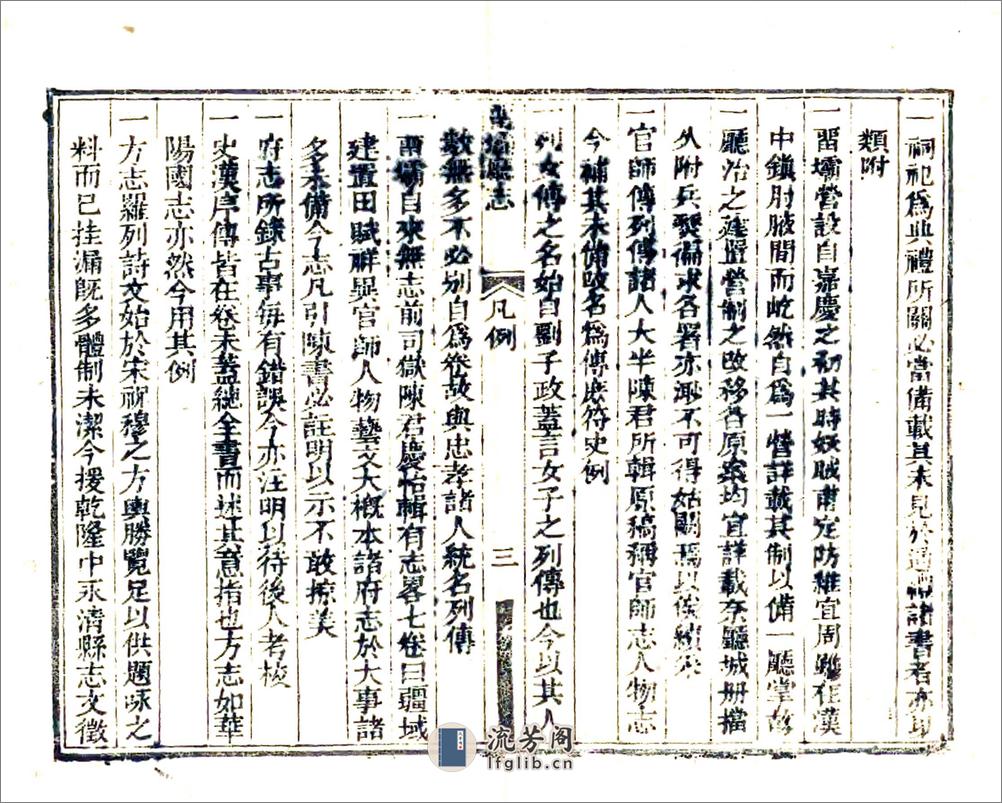 一祠祀爲典禮所關必當備載其未見於通禮諸書者亦以
類附
一畱壩營設自嘉慶之初其時妖賊甫定防維宜周雖在漢
中鎮肘腋間而屹然自爲一營詳載其制以備一廳掌故
一廳治之建置營制之改移各原案均宜詳載奈廳城册檔
久附兵燹徧求各署亦渺不可得姑闕焉以俟續采
一官師傳列傳諸人大半陳君所輯原稿稱官師志人物志
今補其未備改名爲傳庶符史例
一列女傳之名始自劉子政蓋言女子之列傳也今以其人
畱壩廳志
凡例
三
數無多不必别自爲卷故與忠孝諸人統名列傳
一畱壩自來無志前司獄陳君慶怡輯有志畧七卷曰疆域
建置田賦祥異官師人物藝文大概本諸府志於大事諸
多未備今志凡引陳書必註明以示不敢掠美
一府志所錄古事每有錯誤今亦注明以待後人考核
一史漢序傳皆在卷末蓋統全書而述其意指也方志如華
陽國志亦然今用其例
一方志羅列詩文始於宋祝穆之方輿勝覽足以供題咏之
料而已挂漏旣多體制未潔今援乾隆中永清縣志文徵
流芳阁
lfglib.cn